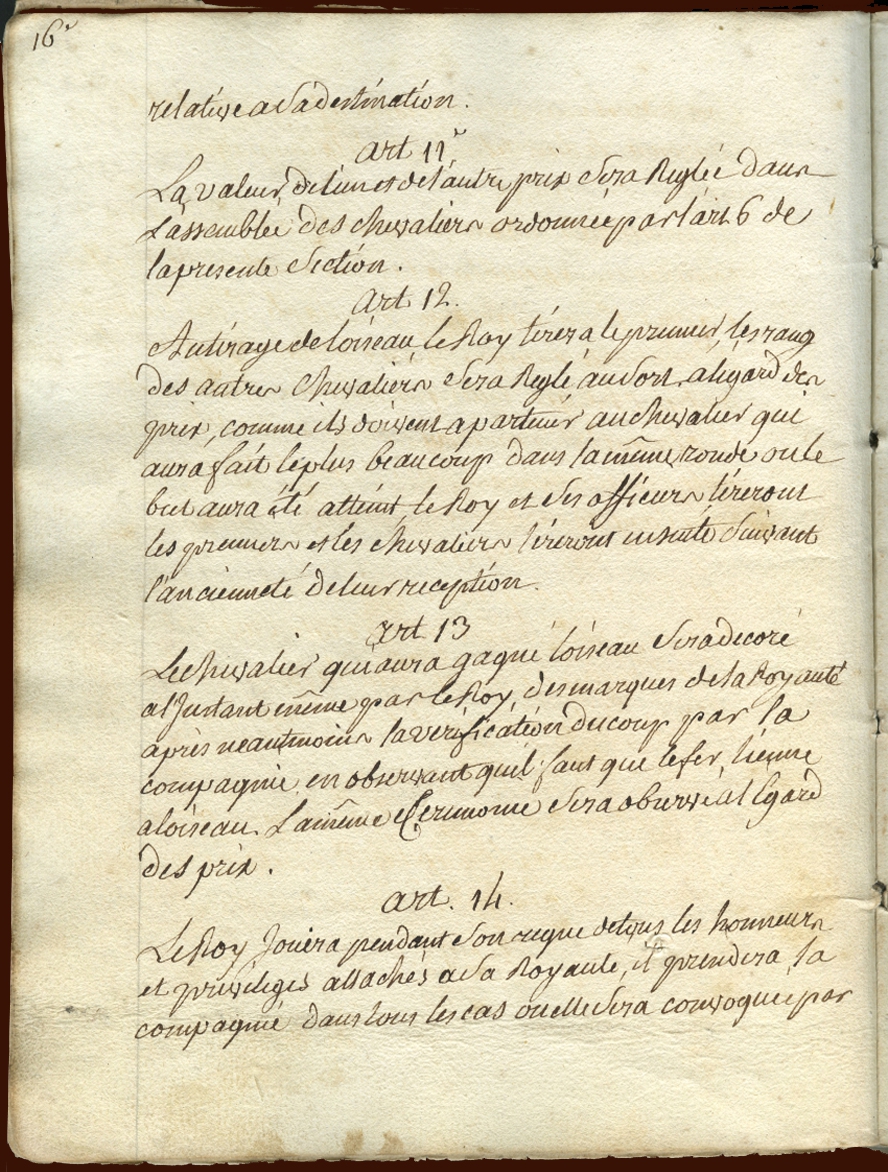 16e
relative a Sa destination.
art 11e
La valeur de l'un et de l'autre prix Sera Reglée dans
L'assemblée des chevaliers ordonnée par l'art. 6 de
la presente Section.
art. 12.
Au tirage de l'oiseau le Roy tirera le premier, les rang
des autres Chevaliers Sera Reglé au Sort. a l'egard des
prix, comme ils doivent apartenir au Chevalier qui
aura fait le plus beau coup dans la même ronde ou le
but aura été atteint, le Roy et Ses officiers tireront
les premiers et les chevaliers tireront ensuite Suivant
l'ancienneté de leur reception.
art. 13
Le Chevalier qui aura gagné l'oiseau Sera decoré
a l'Instant même par le Roy, des marques de la Royauté
après neantmoins la verification du coup par la
compagnie en observant quil faut que le fer tienne
a loiseau. La même Ceremonie Sera observée a l'Egard
des prix.
art. 14.
Le Roy Jouira pendant Son regne de tous les honneurs
et privileges attachés a Sa Royauté, il prendera la
compagnie dans tous les cas ou elle Sera convoquée par